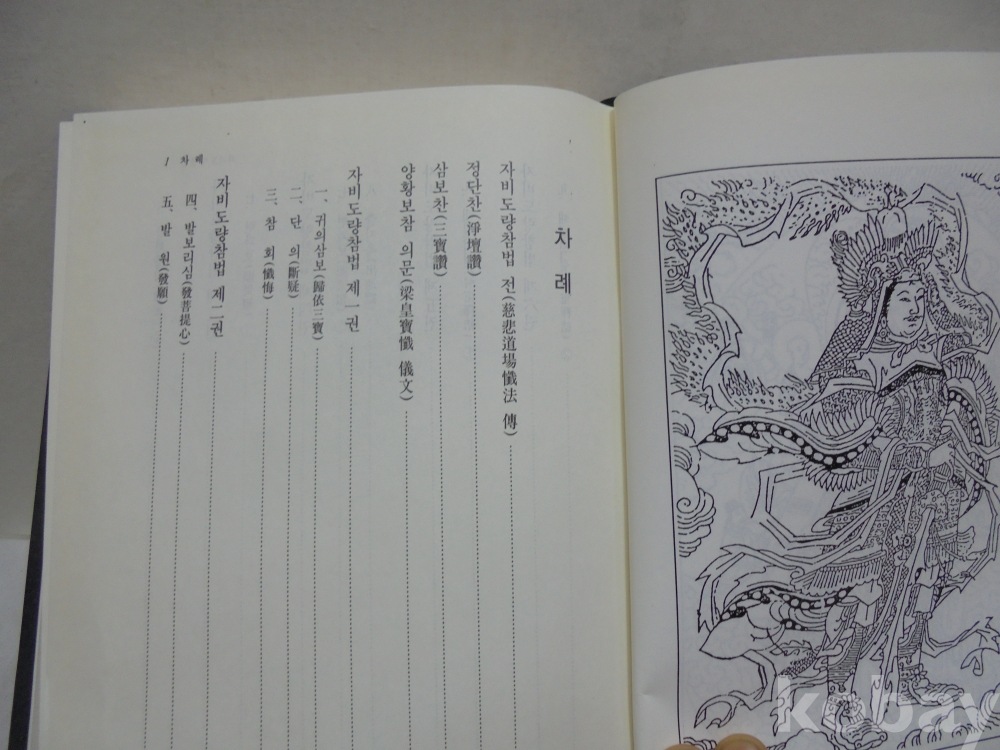 차 례
자비도량참법 전(慈悲道場懺法 傳)
정단찬(淨壇讚)
삼보찬(三寶讚)
양황보참 의문(梁皇寶懺 儀文)
자비도량참법 제一권
一、귀의삼보(歸依三寶)
二、단 의(斷疑)
三、참 회(懺悔)
자비도량참법 제二권
四、발보리심(發菩提心)
五、발 원(發願)
1 차 례
kobay